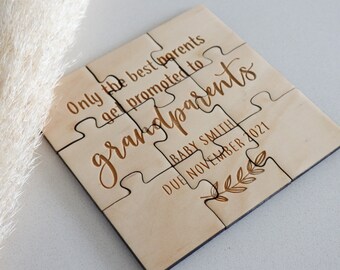 Only the best parents
get promoted to
grandparents
BABY SMITH
DUE NOVEMBER 2021